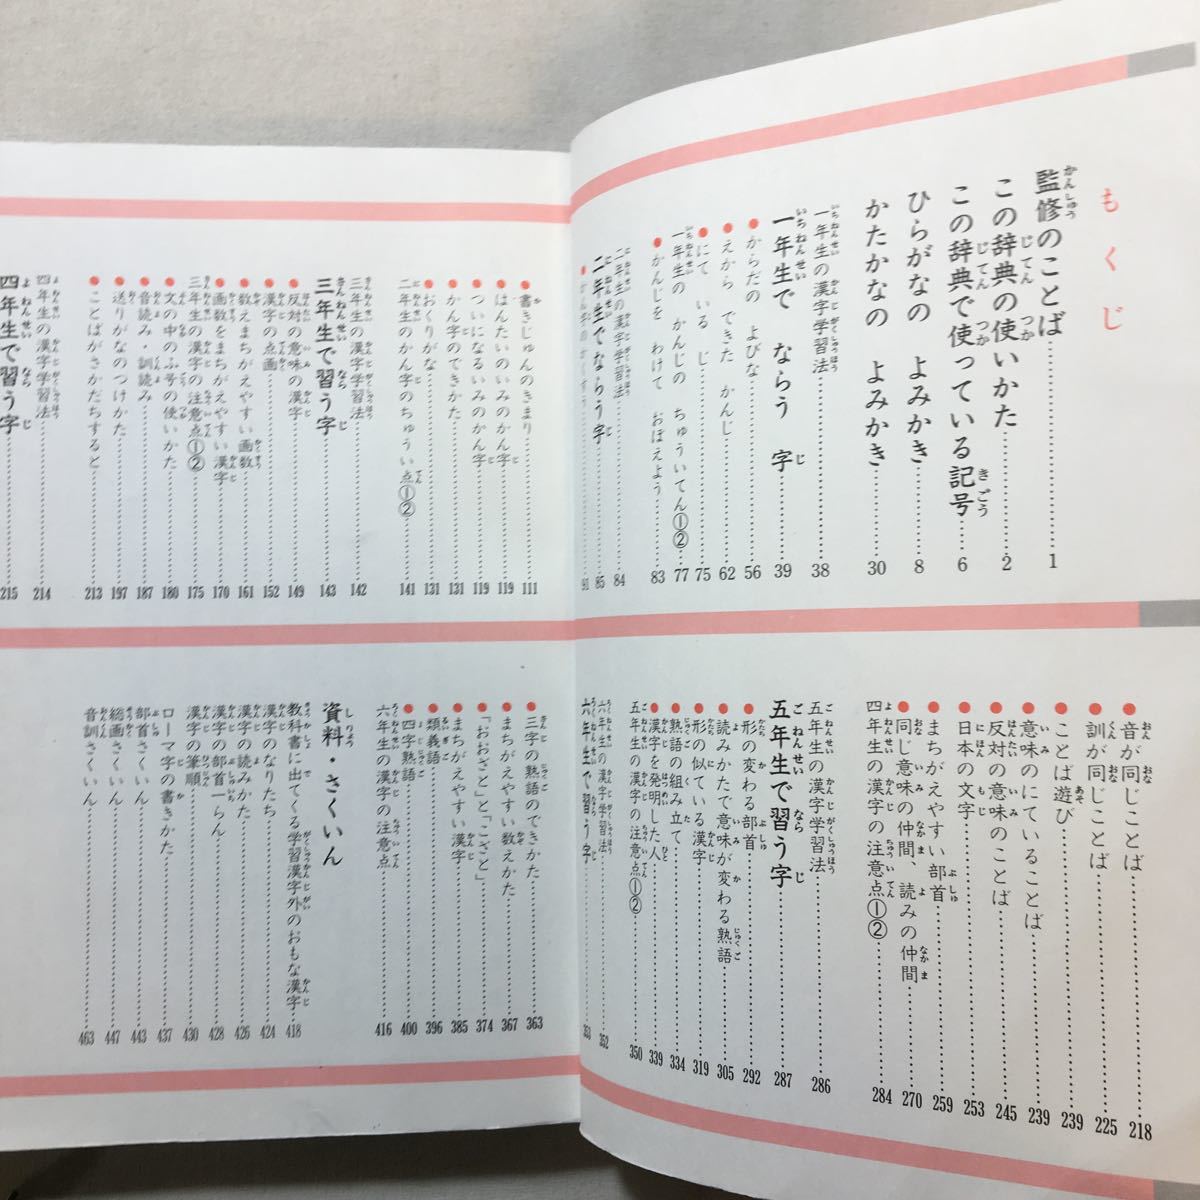 もくじ
監修のことば 1
この辞典の使いかた 2
この辞典で使っている記号 6
ひらがなの よみかき 8
かたかなの よみかき 30
一年生の漢字学習法 38
一年生で ならう 字 39
●からだの よびな 56
●えから できた かんじ 62
●にて いる じ 75
一年生の かんじの ちゅういてん①② 77
●かんじを わけて おぼえよう 83
二年生の漢字学習法 84
二年生でならう字 85
91
●書きじゅんのきまり 111
●はんたいのいみのかん字 119
●ついになるいみのかん字 119
●かん字のできかた 131
●おくりがな 131
二年生のかん字のちゅうい点①② 141
三年生の漢字学習法 142
三年生で習う字 143
●反対の意味の漢字 149
●漢字の点画 152
●数えまちがえやすい画数 161
●画数をまちがえやすい漢字 170
三年生の漢字の注意点①② 175
●文の中のふ号の使いかた 180
●音読み・訓読み 187
●送りがなのつけかた 197
●ことばがさかだちすると 213
四年生の漢字学習法 214
四年生で習う字 215
●音が同じことば 218
●訓が同じことば 225
●ことば遊び 239
●意味のにていることば 239
●反対の意味のことば 245
●日本の文字 253
●まちがえやすい部首 259
●同じ意味の仲間、読みの仲間 270
四年生の漢字の注意点①② 284
五年生の漢字学習法 286
五年生で習う字 287
●形の変わる部首 292
●読みかたで意味が変わる熟語 305
●形の似ている漢字 319
●熟語の組み立て 334
●漢字を発明した人 339
五年生の漢字の注意点①② 350
六年生の漢字学習法 352
六年生で習う字 353
●三字の熟語のできかた 363
●まちがえやすい数えかた 367
●「おおざと」と「こざと」 374
●まちがえやすい漢字 385
●類義語 396
●四字熟語 400
六年生の漢字の注意点 416
資料・さくいん
教科書に出てくる学習漢字外のおもな漢字 418
漢字のなりたち 424
漢字の読みかた 426
漢字の部首一らん 428
漢字の筆順 430
ローマ字の書きかた 437
部首さくいん 443
総画さくいん 447
音訓さくいん 463